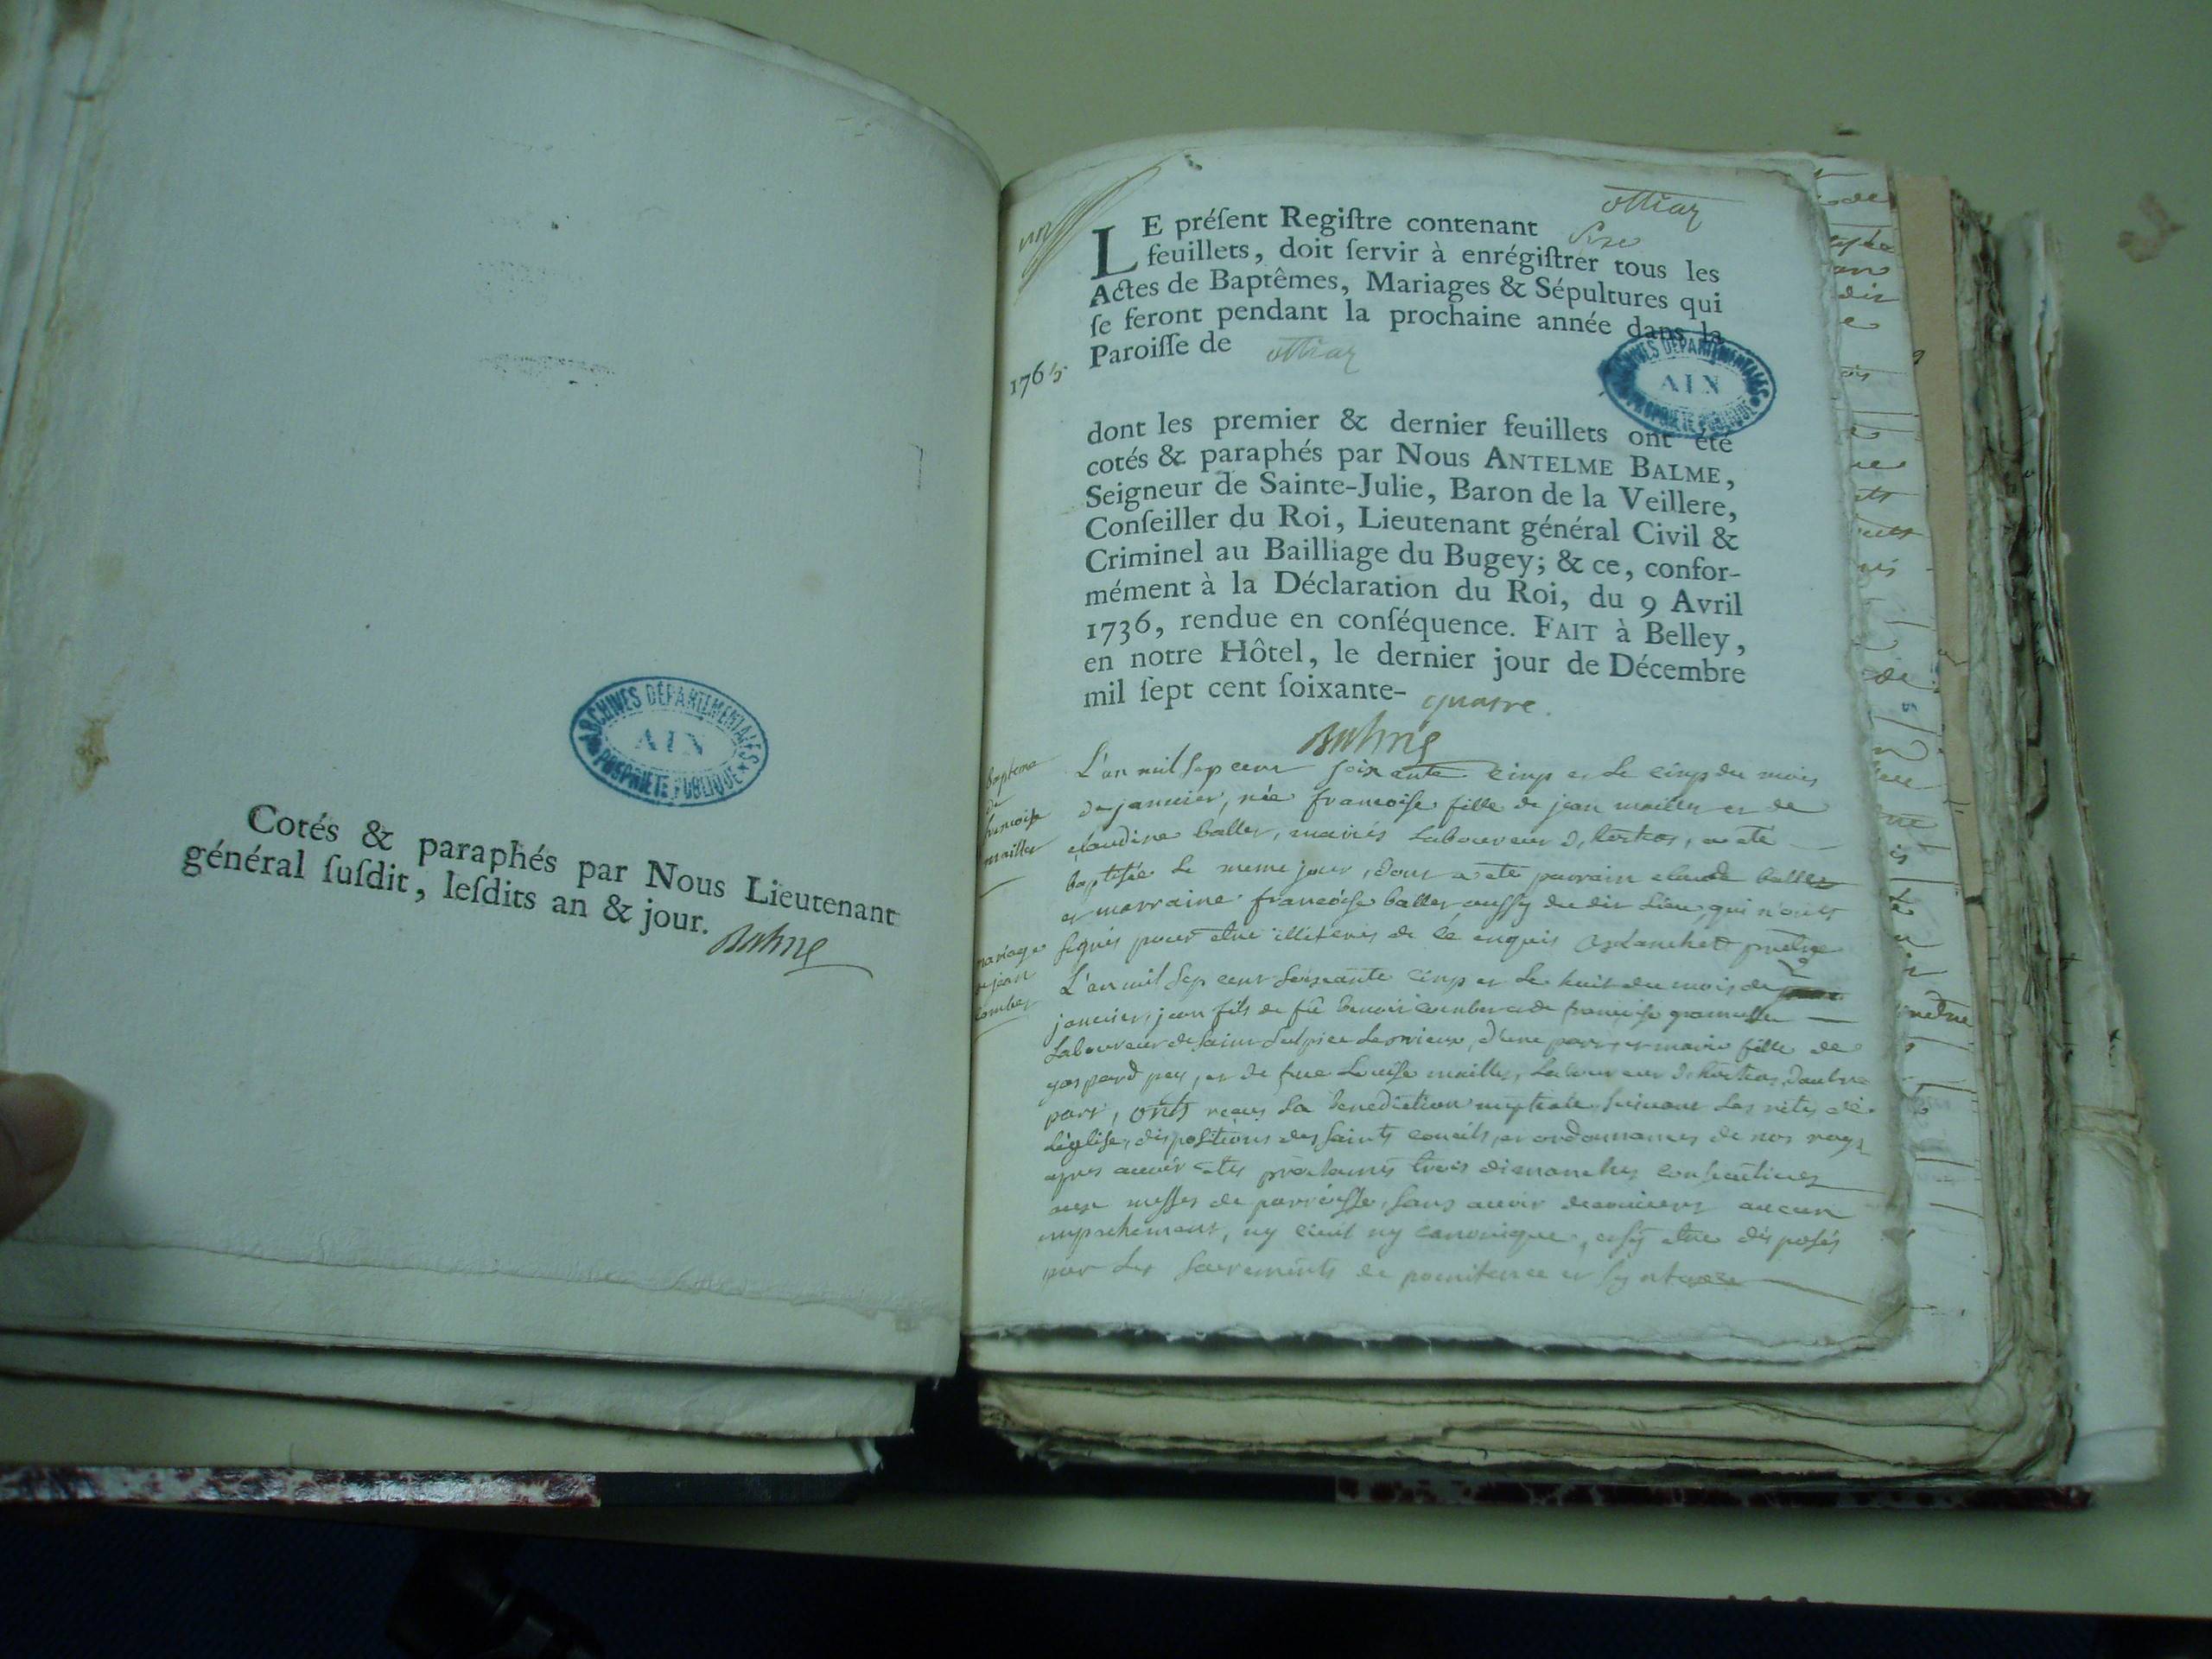 ARCHIVES DÉPARTEMENTALES
AIN
PROPRIÉTÉ PUBLIQUE
Cotés & paraphés par Nous Lieutenant
général ſuſdit, leſdits an & jour.
Balme
un
ottiaz
LE préſent Regiſtre contenant
feuillets, doit ſervir à enrégiſtrer tous les
Actes de Baptêmes, Mariages & Sépultures qui
ſe feront pendant la prochaine année dans la
Paroiſſe de ottiaz
1765
ARCHIVES DÉPARTEMENTALES
AIN
PROPRIÉTÉ PUBLIQUE
dont les premier & dernier feuillets ont été
cotés & paraphés par Nous ANTELME BALME,
Seigneur de Sainte-Julie, Baron de la Veillere,
Conſeiller du Roi, Lieutenant général Civil &
Criminel au Bailliage du Bugey; & ce, confor-
mément à la Déclaration du Roi, du 9 Avril
1736, rendue en conſéquence. FAIT à Belley,
en notre Hôtel, le dernier jour de Décembre
mil ſept cent ſoixante- quatre.
Balme
Bapteme
de
francoise
mailler
L'an mil sep cent soixante cinq et le cinq du mois
de janvier, née francoise fille de jean mailler et de
claudine baller, mariés laboureur a été
baptisée le meme jour, dont a été parrain claude baller
et marraine francoise baller aussy du dit lieu, qui n'onts
signés pour etre illiterés de ce enquis prêtre
mariage
de jean
comber
L'an mil sep cent soixante cinq et le huit du mois de
janvier, jean fils de fû benoit comber et de francoise
laboureur de saint sulpice le vieux, d'une part et marie fille de
gaspard pey, et de fue Louise mailler, laboureur d'autre
part, onts reçus la benediction nuptiale suivant les rites de
l'église, dispositions des saints concils, et ordonnances de nos roys
apres avoir étés proclamés trois dimanches consecutives
aux messes de parroisse, sans avoir decouvert aucun
empechement, ny civil ny canonique, et etre disposés
par les sacrements de poenitence et